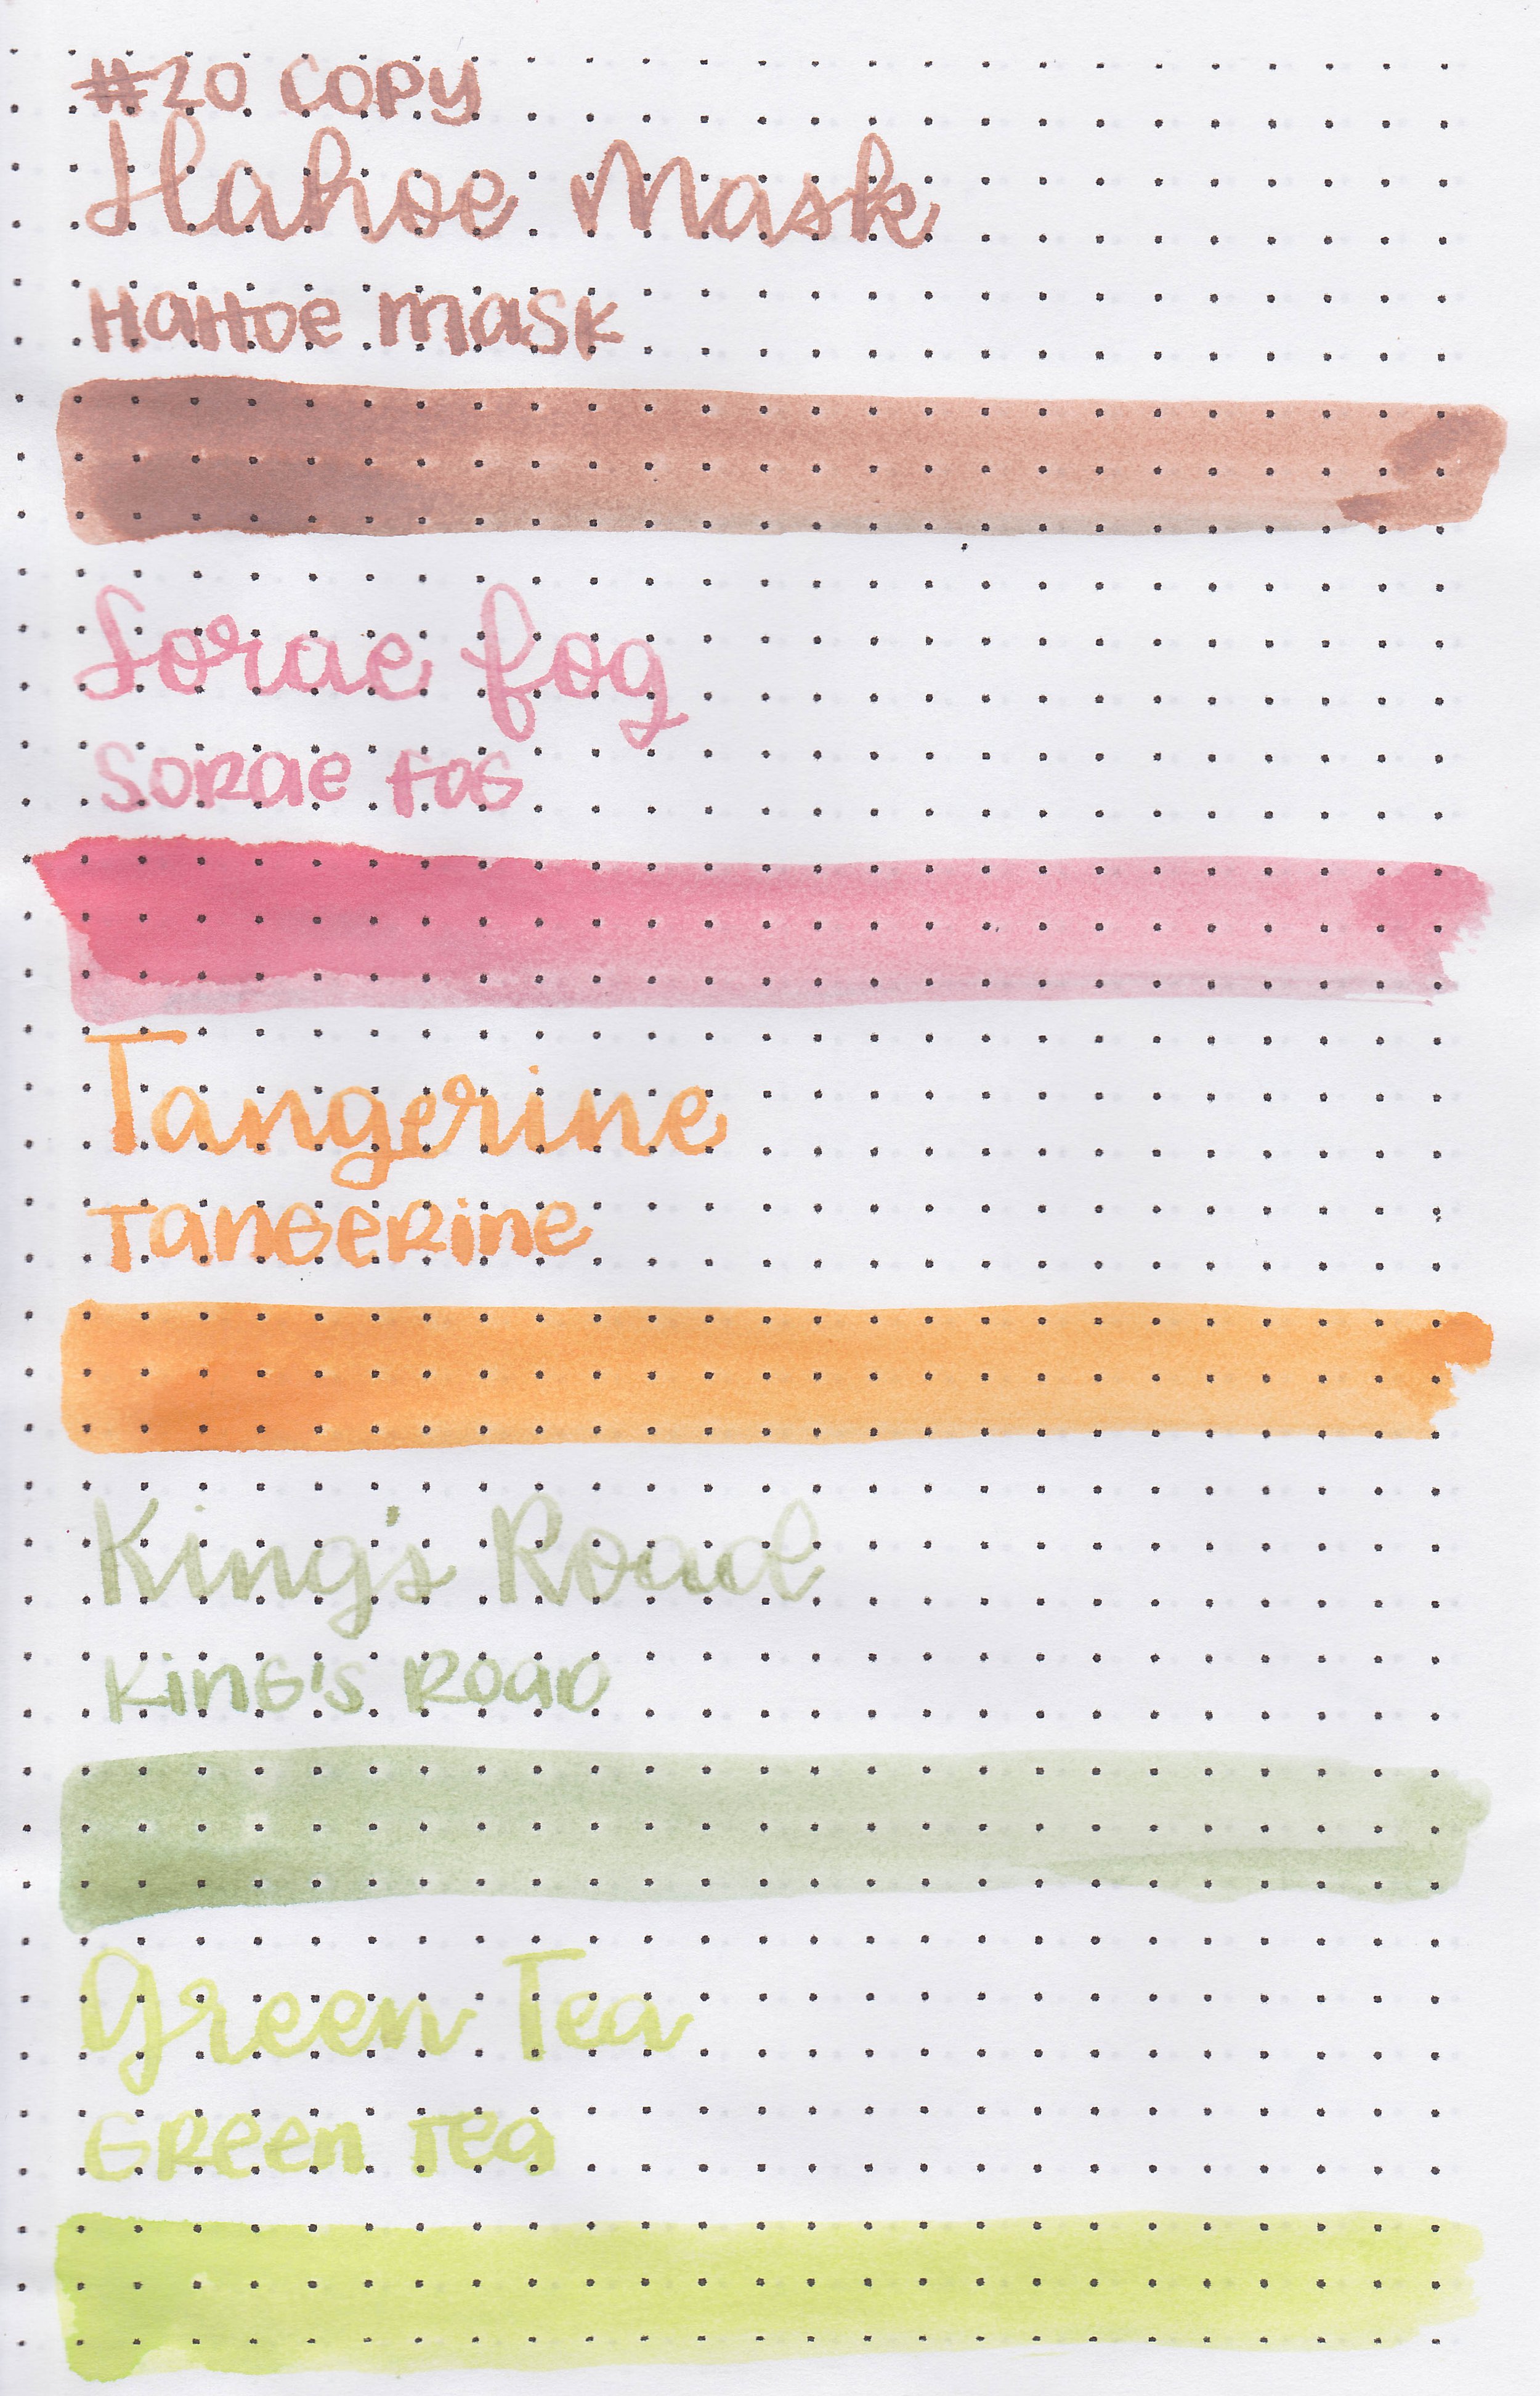 #20 COPY
Hahoe Mask
HaHoe mask
Sorae fog
Sorae FoG
Tangerine
TanGeRine
King's Road
KinG's Road
Green Tea
GReen Tea